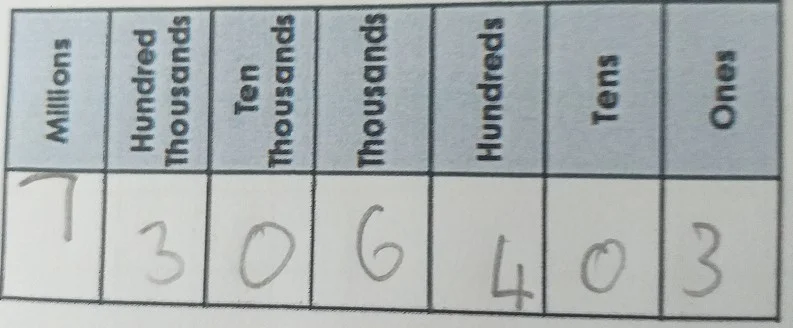 Millions
Hundred
Thousands
Ten
Thousands
Thousands
Hundreds
Tens
Ones
7 3 0 6 4 0 3